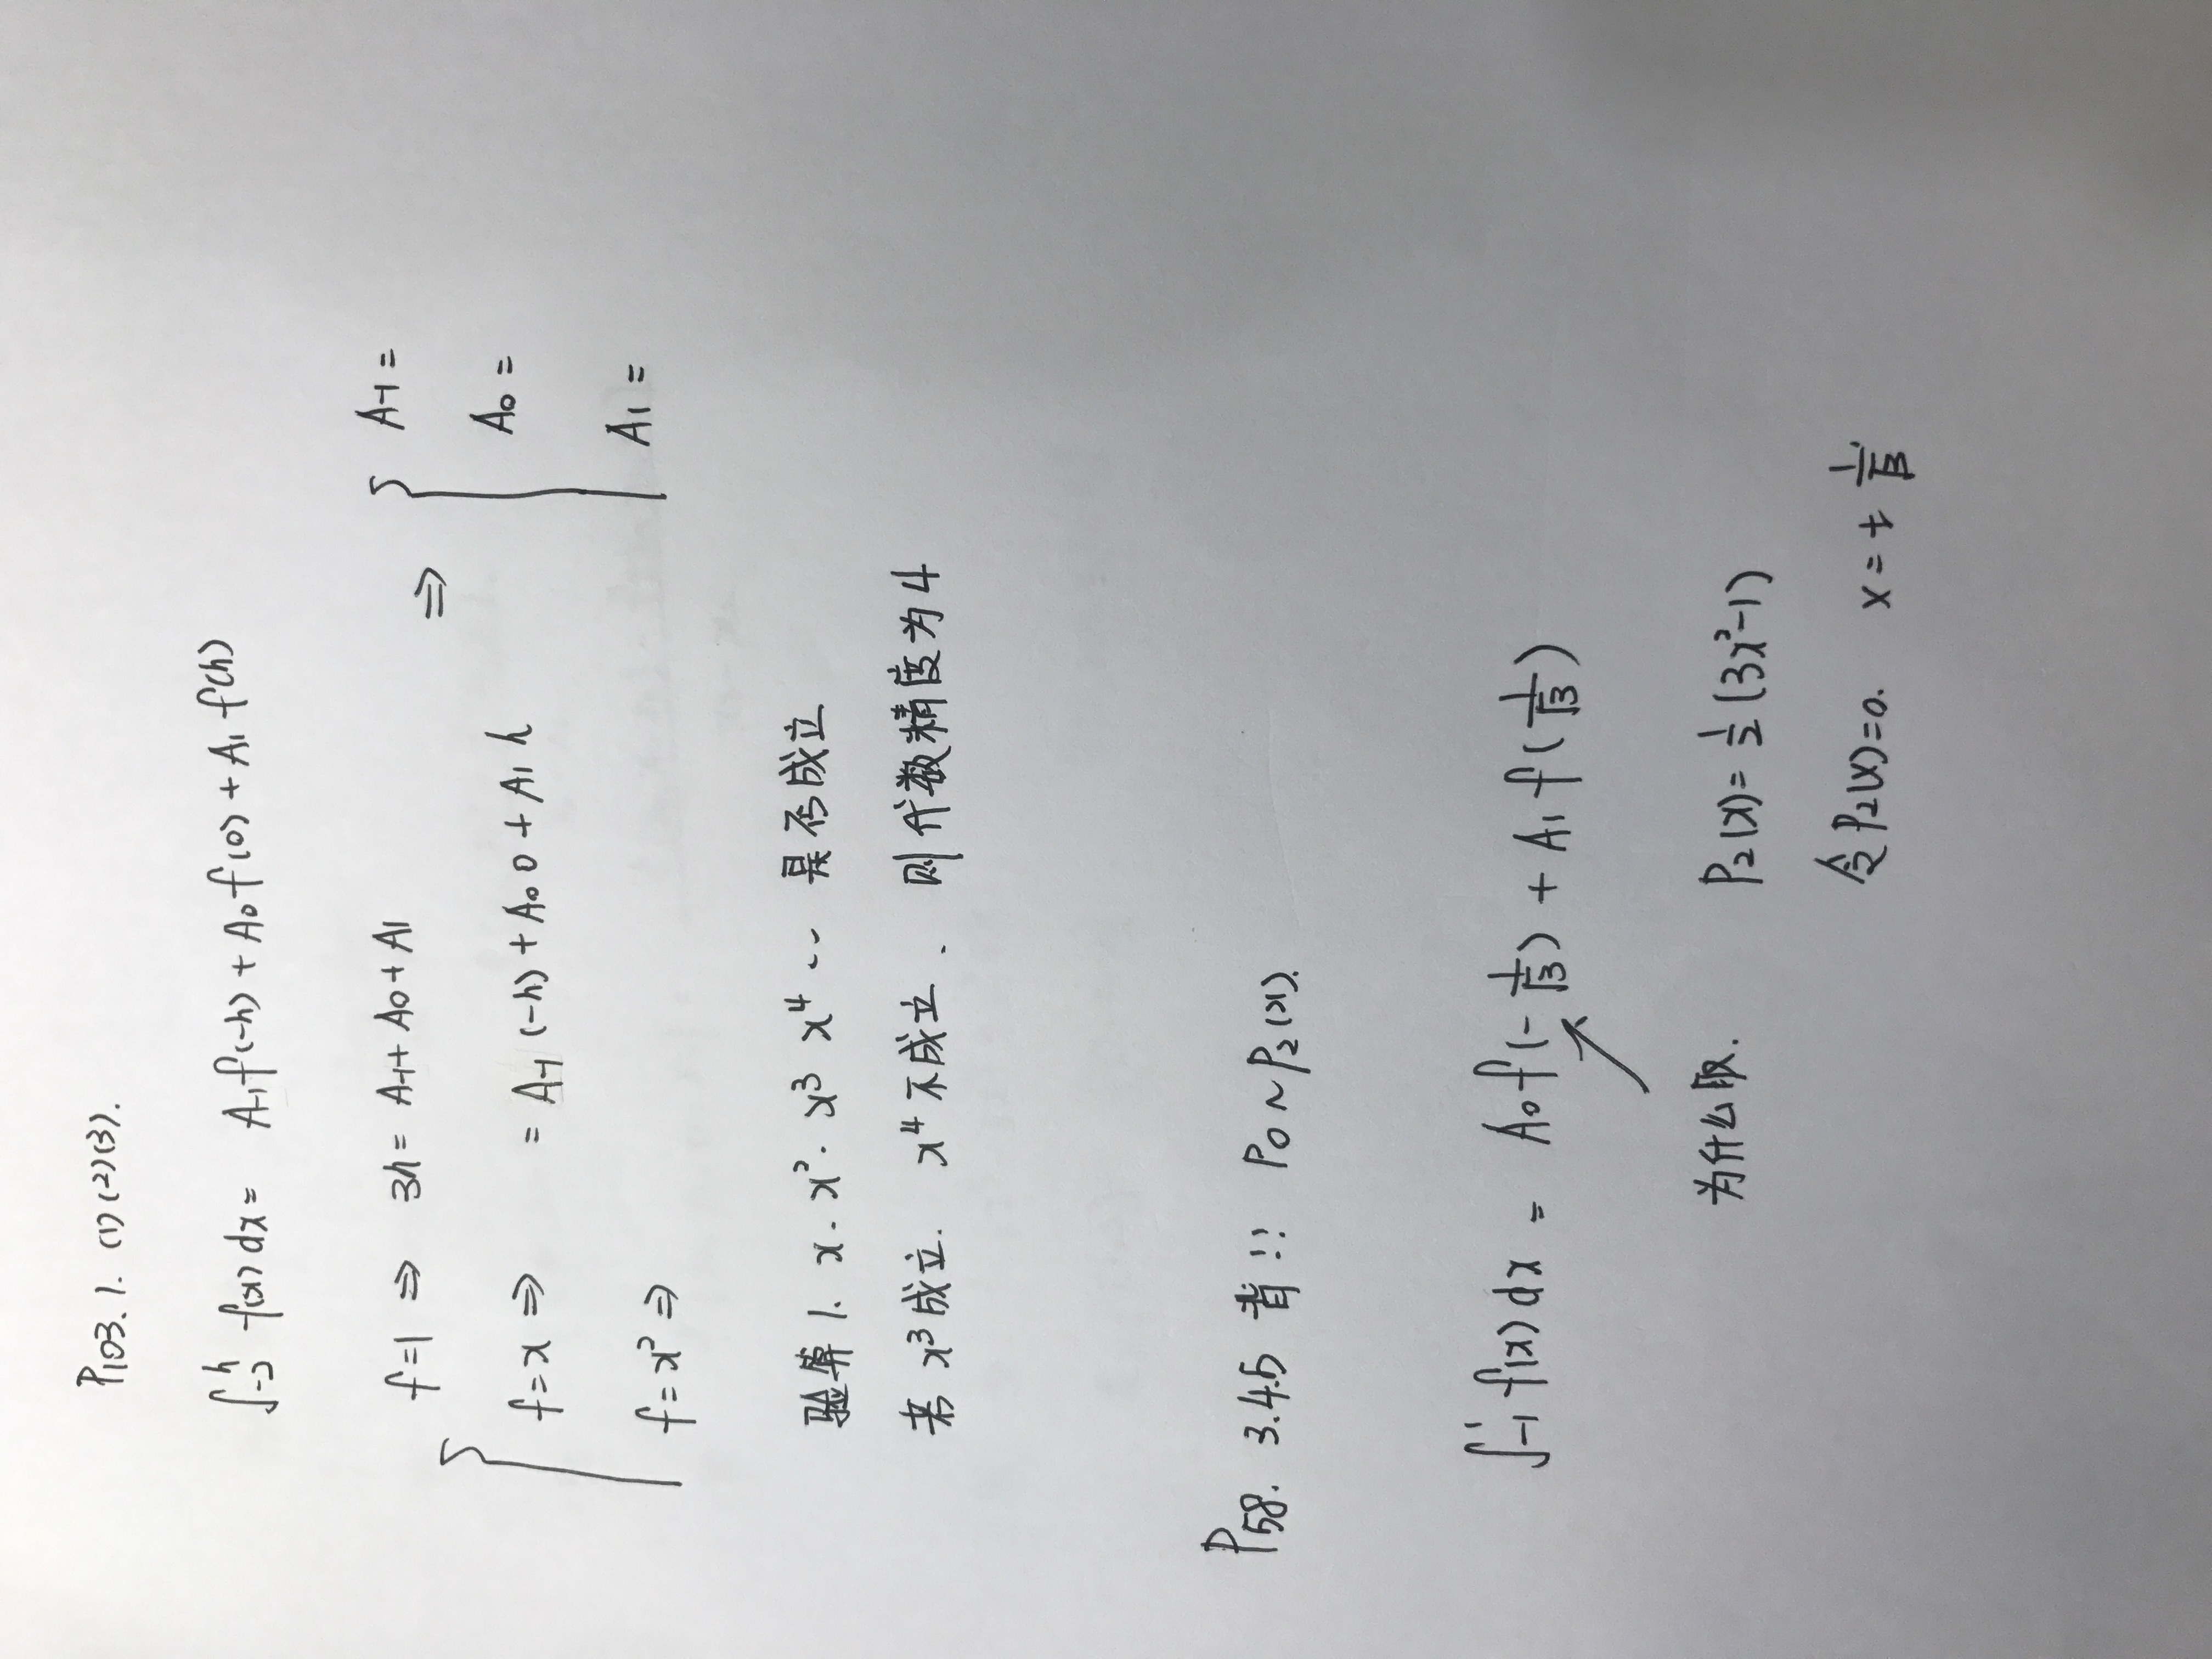 P103. 1. (1)(2)(3).
∫_{-2}^{h} f(x) dx = A₋₁f(-h) + A₀f(0) + A₁f(h)
f=1 ⇒ 3h = A₋₁ + A₀ + A₁ ⇒ A₋₁ =
f=x ⇒ = A₋₁(-h) + A₀0 + A₁h A₀ =
f=x² ⇒ A₁ =
验算 1. x. x². x³ x⁴ ·· 是否成立
若 x³ 成立. x⁴ 不成立. 则代数精度为4
P58. 3.4.5 背!! P₀~P₂(x).
∫_{-1}^{1} f(x) dx = A₀f(-1/√3) + A₁f(1/√3)
为什么取. P₂(x) = ½(3x²-1)
令P₂(x)=0. x = ± 1/√3